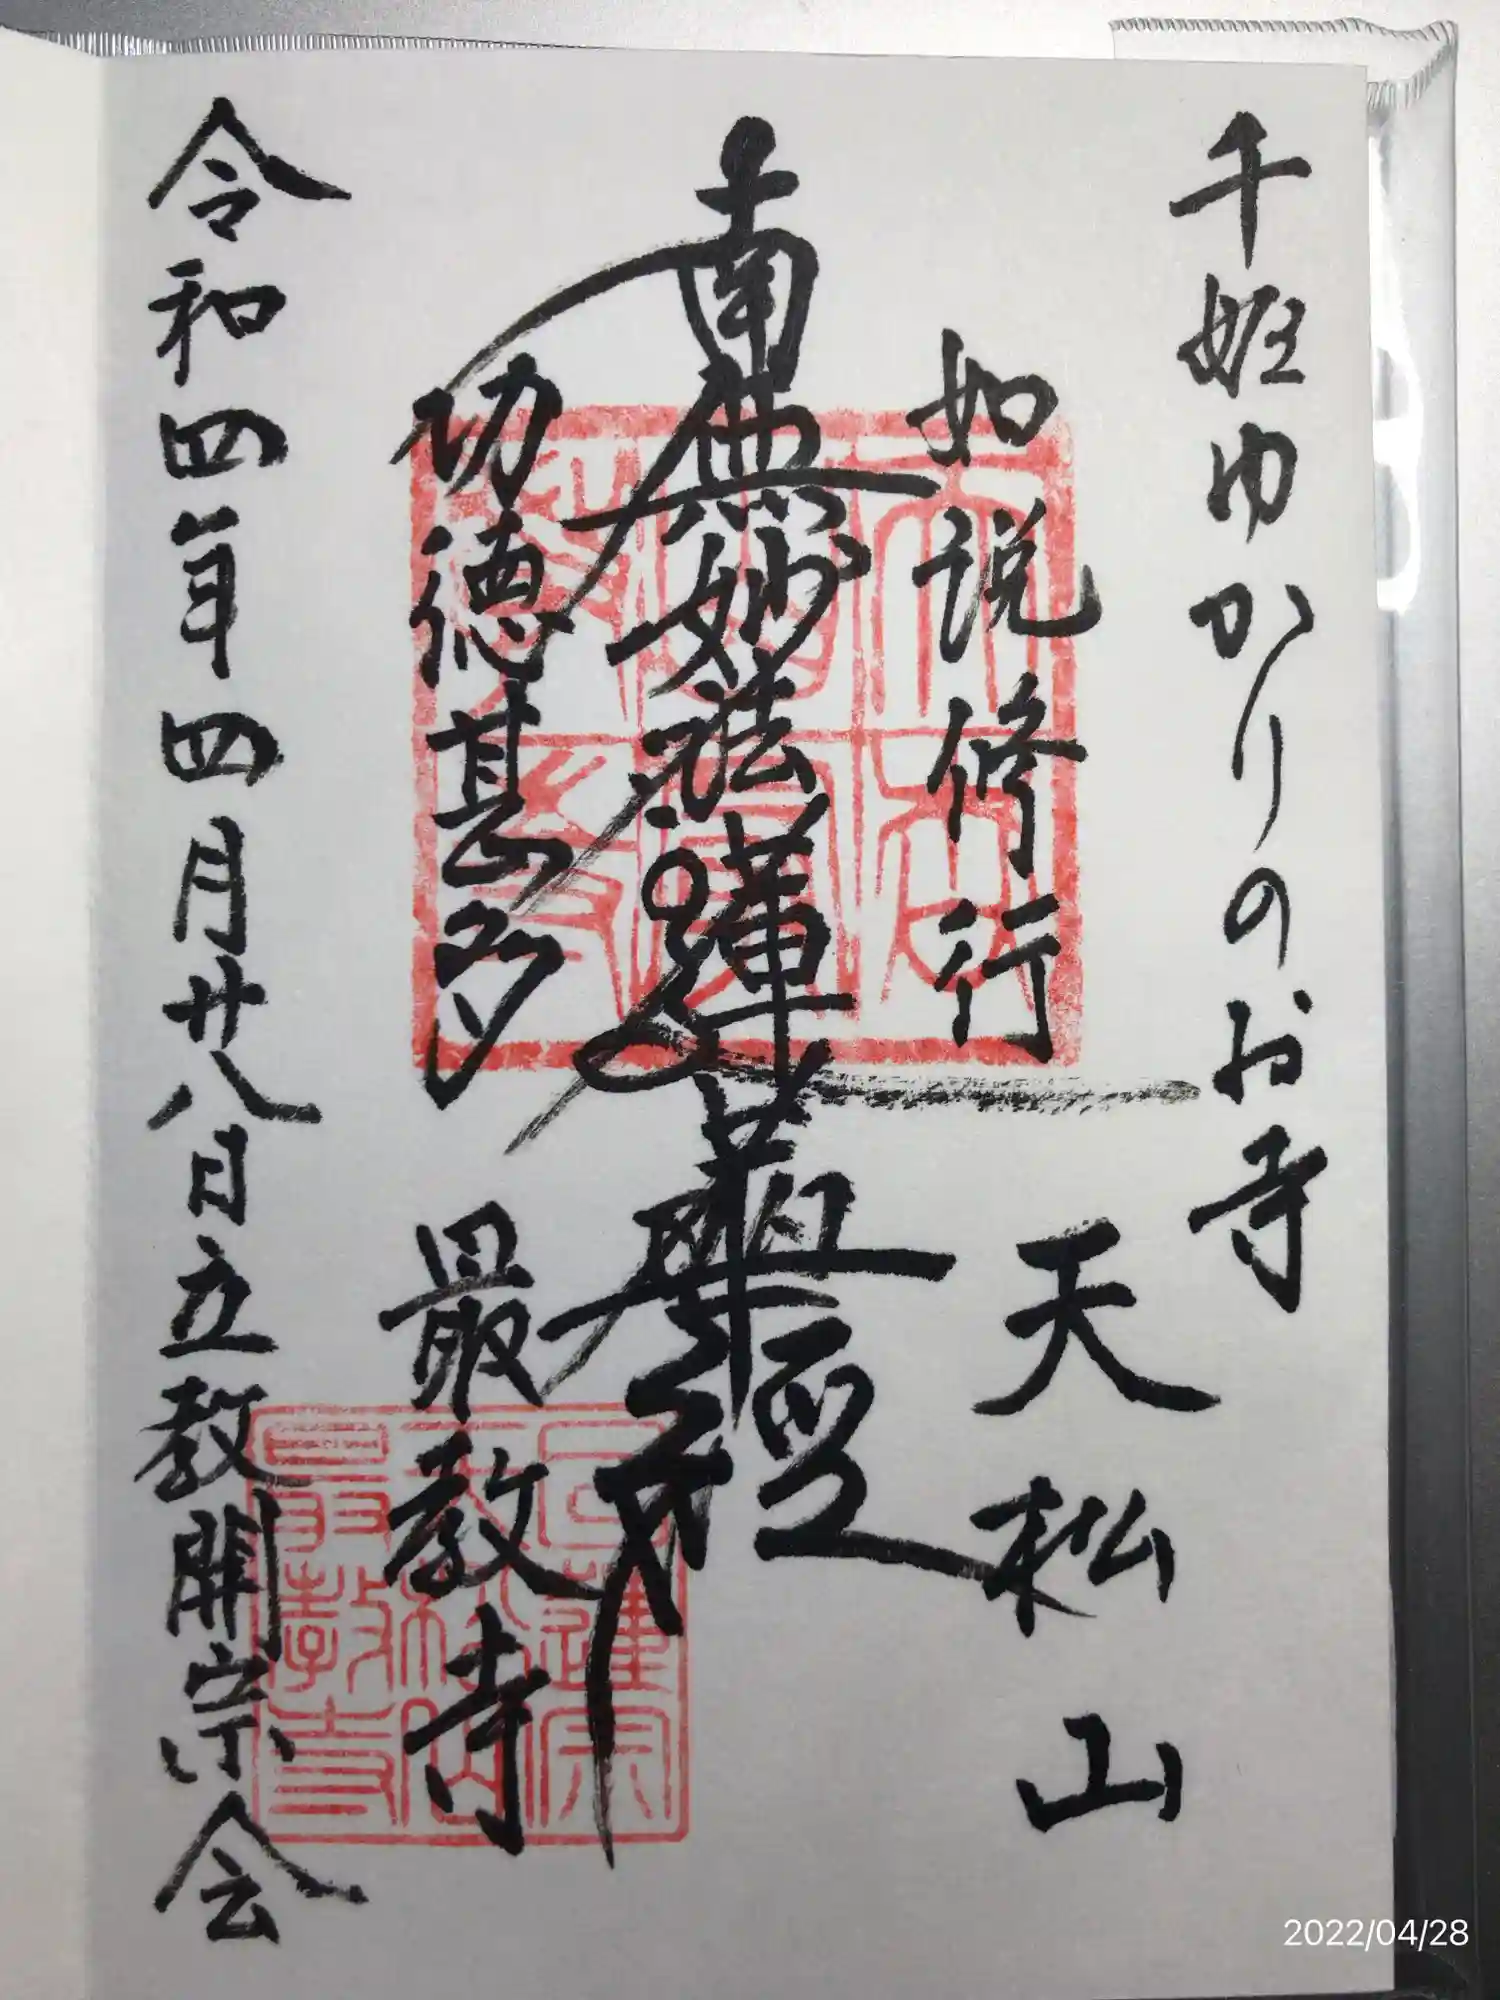 千姫ゆかりのお寺
如説修行
天松山
南無妙法蓮華経
功徳甚多
最教寺
令和四年四月廿八日立教開宗会
日蓮宗
天松山
最教寺
2022/04/28